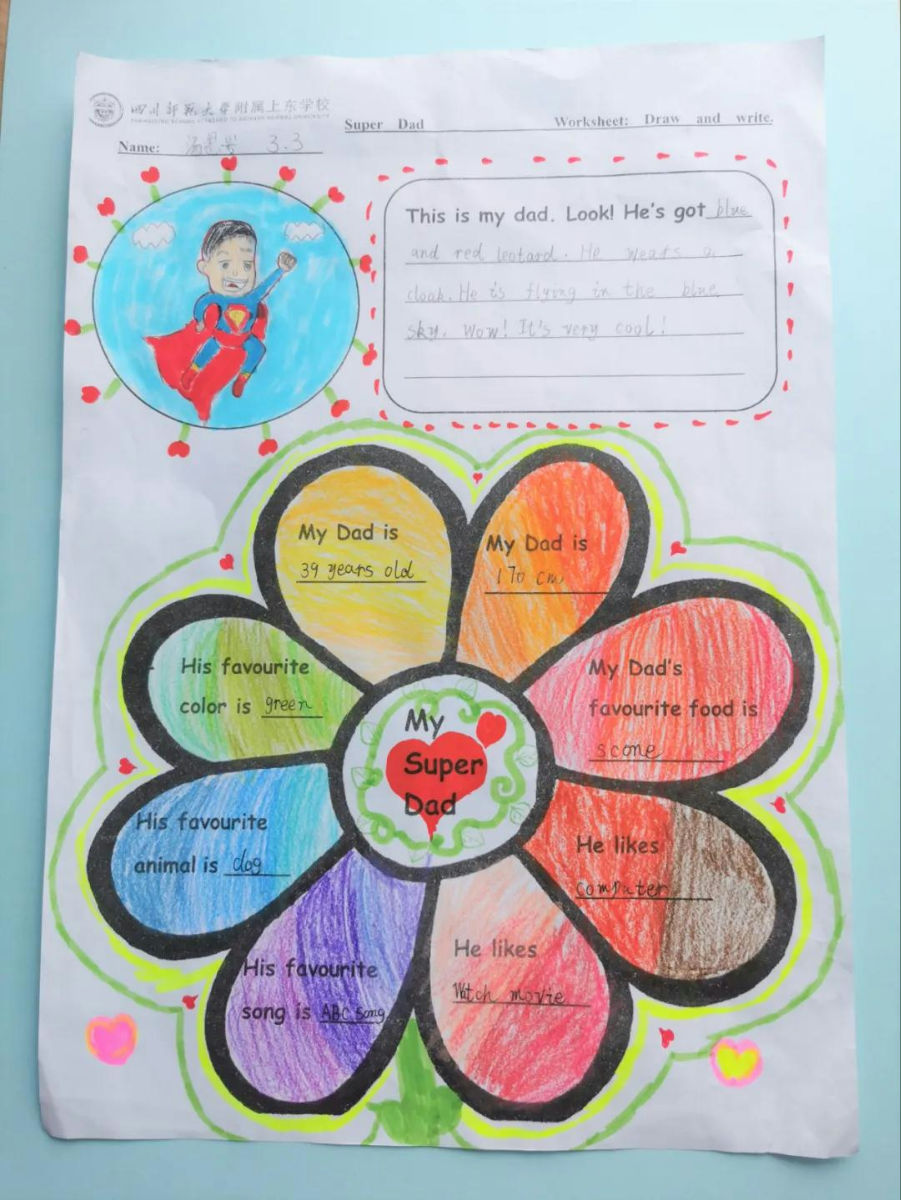 四川师范大学附属上东学校
Super Dad
Worksheet: Draw and write.
Name: 3.3
This is my dad. Look! He's got blue
and red leotard. He wears a
cloak. He is flying in the blue
sky. Wow! It's very cool!
My Dad is
39 years old
My Dad is
170 cm
His favourite
color is green
My Dad's
favourite food is
scone
My
Super
Dad
His favourite
animal is dog
He likes
computer
His favourite
song is ABC song
He likes
Watch movie